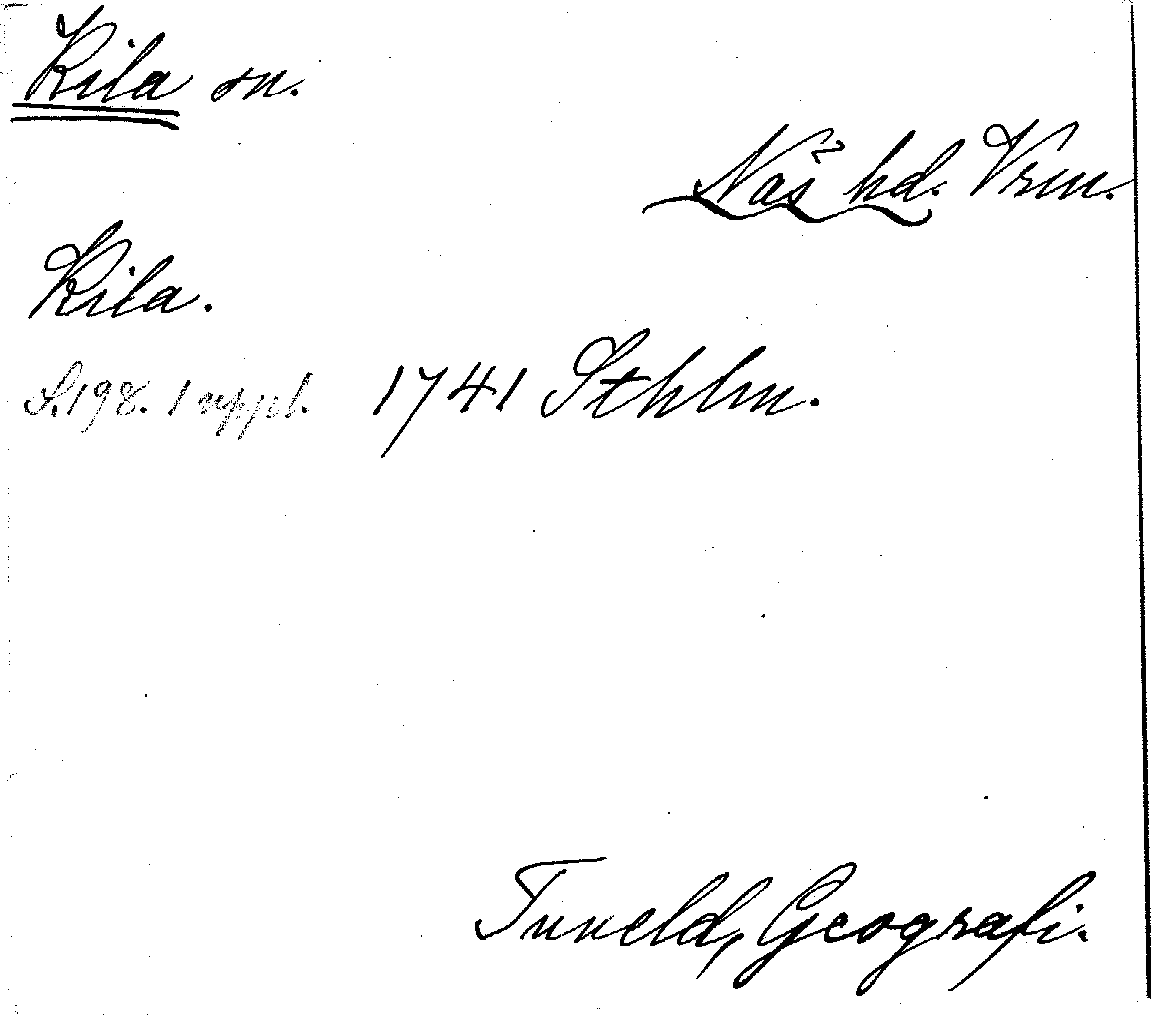 Kila sn.
Näs hd. Vrm.
Kila.
S. 198. 1 uppl. 1741 Sthlm.
Tuneld, Geografi.